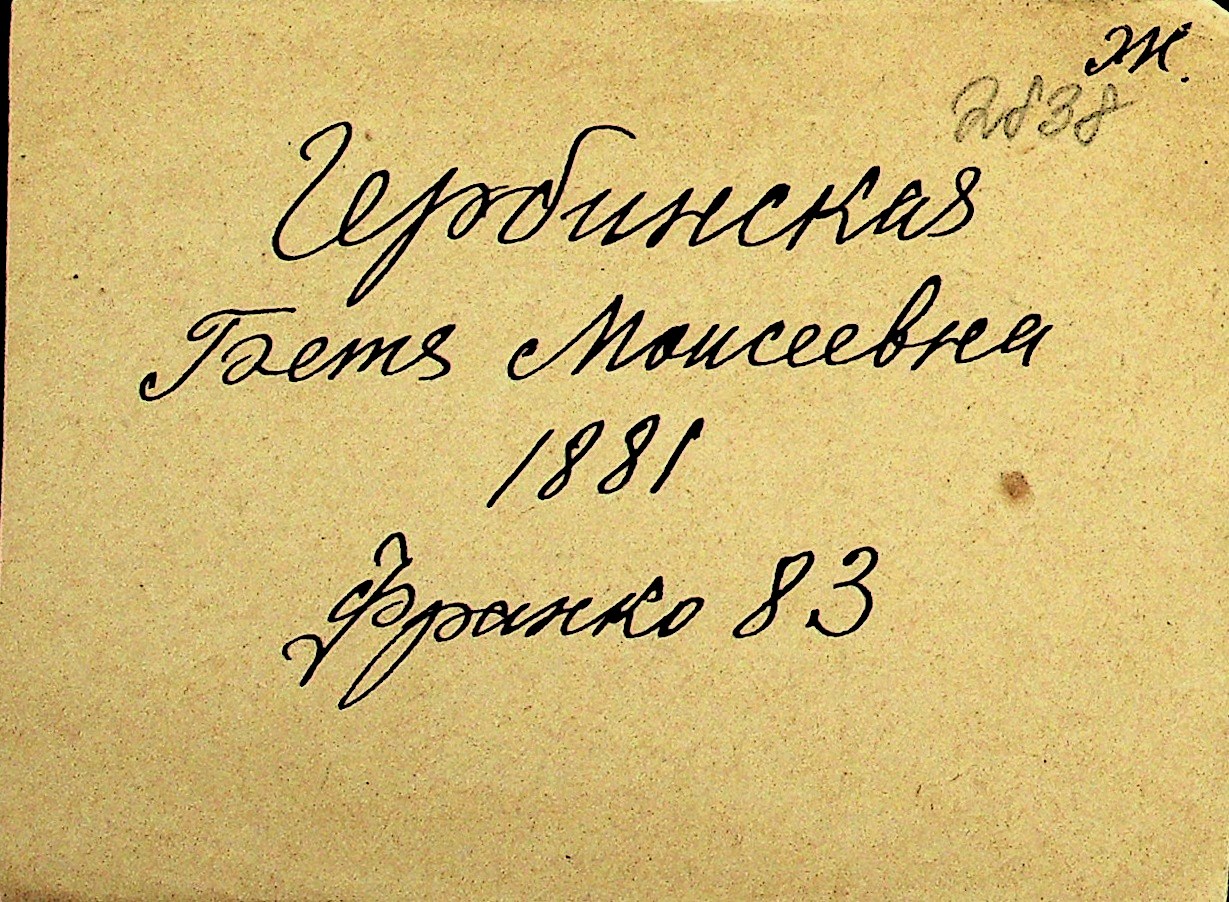 ж.
2838
Чербинская
Бетя Моисеевна
1881
Франко 83